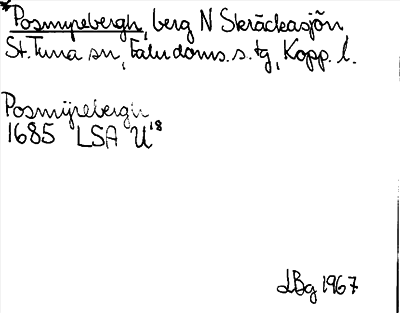 *Posmyrebergh, berg N Skräckasjön
St. Tuna sn, Falu doms. s. tg, Kopp. l.
Posmÿrebergh
1685 LSA U18
LBg 1967